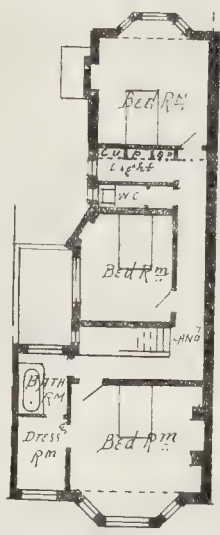 Bed Rm
Cup Bd
Light
WC
Bed Rm
LAND'G
BATH
RM
DRESS'G
Rm
Bed Rm